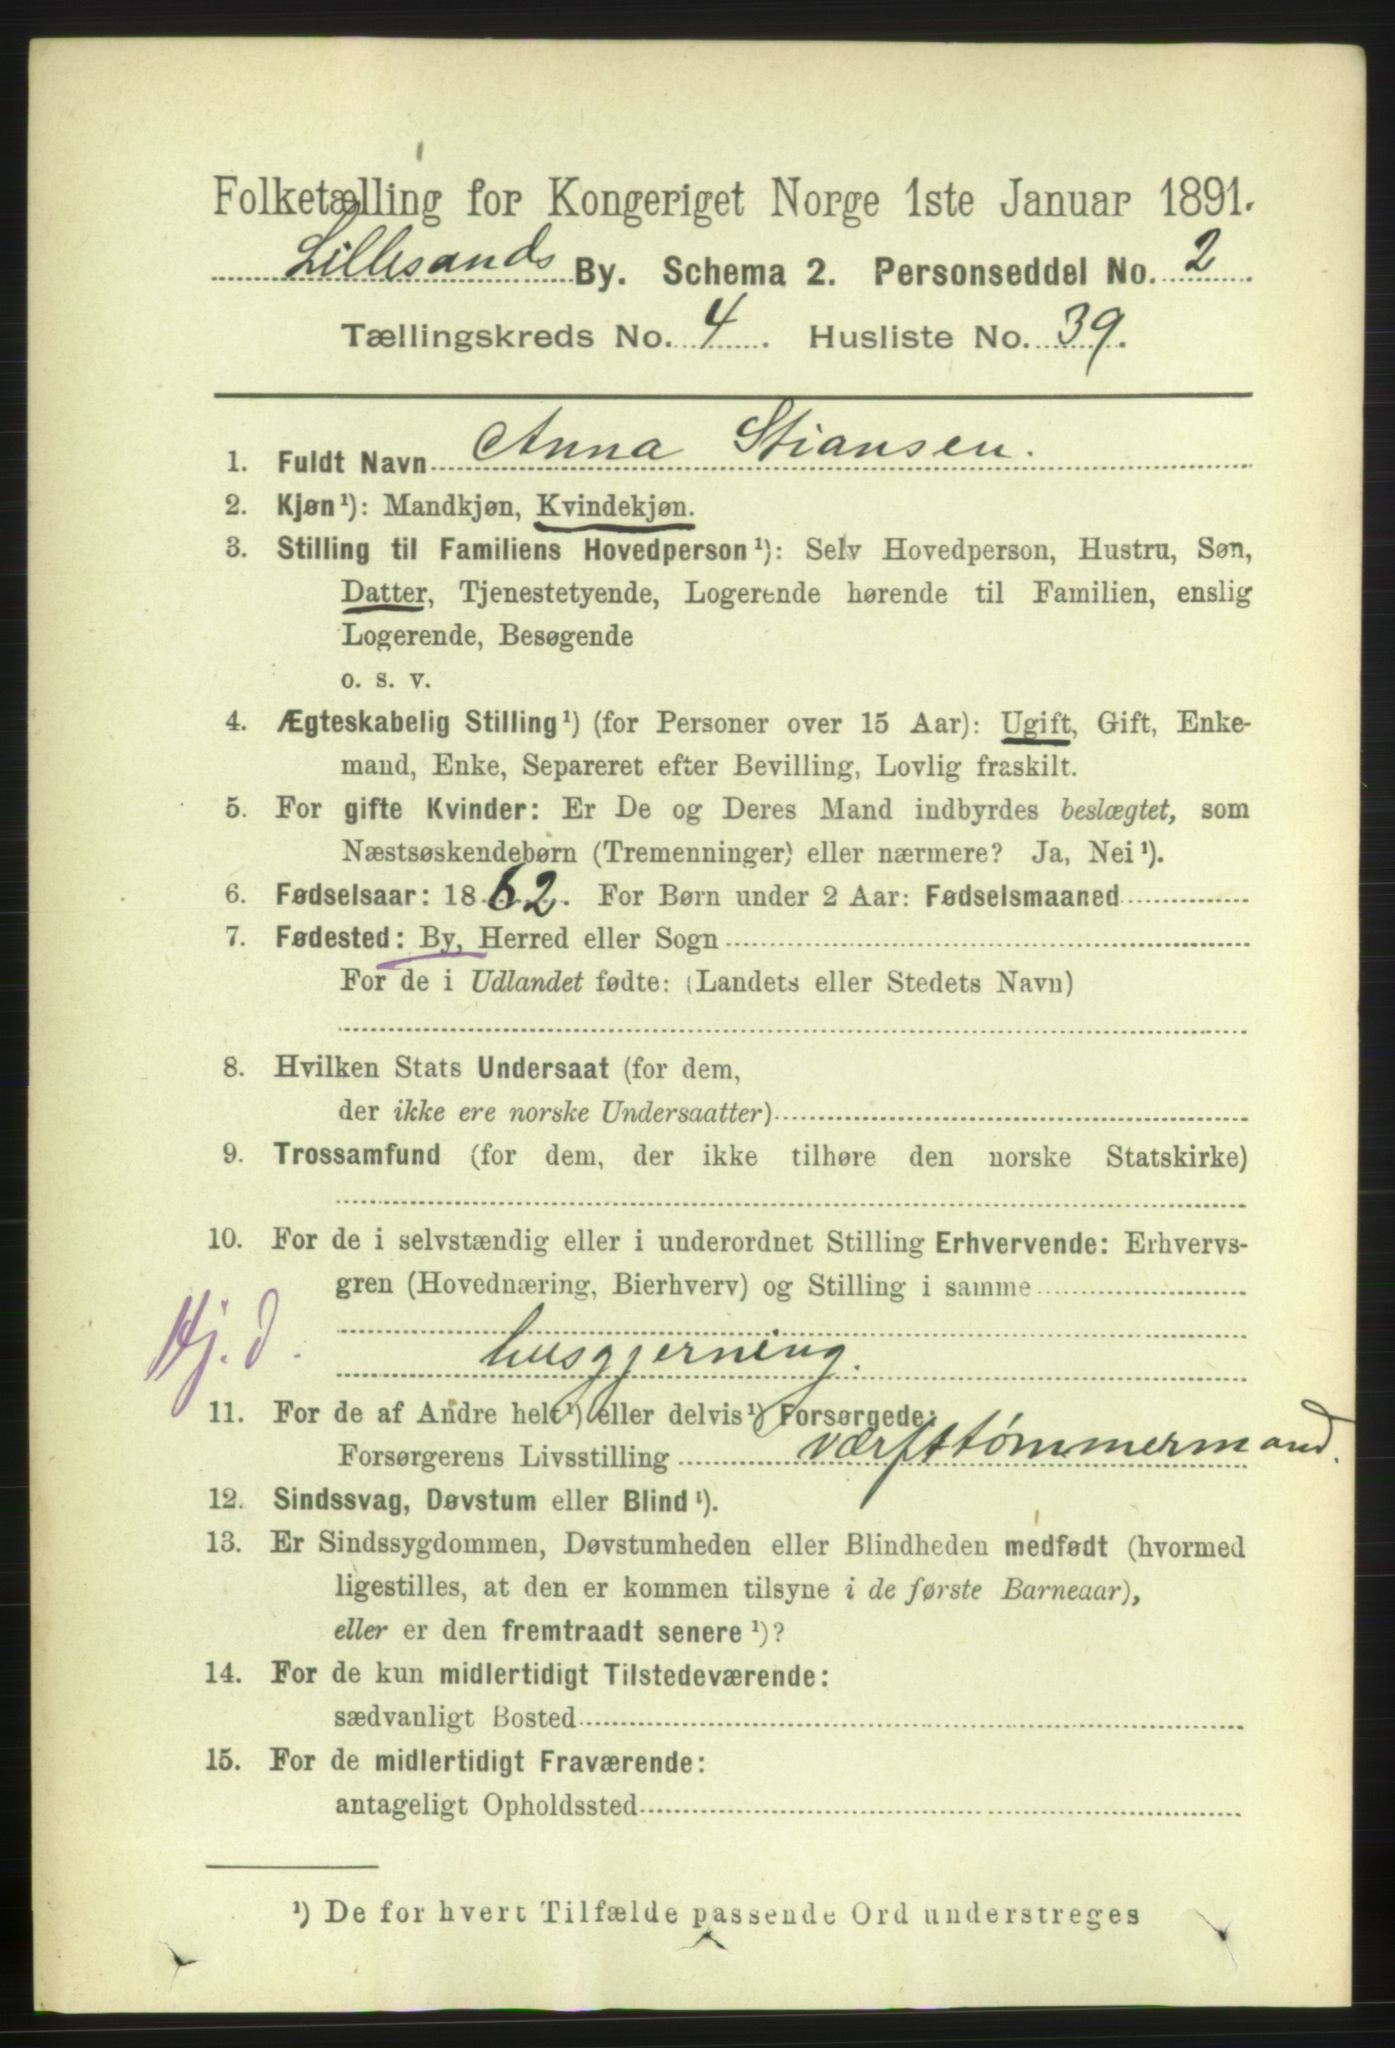 Folketælling for Kongeriget Norge 1ste Januar 1891.
Lillesands By. Schema 2. Personseddel No. 2
Tællingskreds No. 4. Husliste No. 39.
1. Fuldt Navn Anna Stiansen.
2. Kjøn¹): Mandkjøn, Kvindekjøn.
3. Stilling til Familiens Hovedperson¹): Selv Hovedperson, Hustru, Søn,
Datter, Tjenestetyende, Logerende hørende til Familien, enslig
Logerende, Besøgende
o. s. v.
4. Ægteskabelig Stilling¹) (for Personer over 15 Aar): Ugift, Gift, Enke-
mand, Enke, Separeret efter Bevilling, Lovlig fraskilt.
5. For gifte Kvinder: Er De og Deres Mand indbyrdes beslægtet, som
Næstsøskendebørn (Tremenninger) eller nærmere? Ja, Nei¹).
6. Fødselsaar: 1862. For Børn under 2 Aar: Fødselsmaaned
7. Fødested: By, Herred eller Sogn
For de i Udlandet fødte: (Landets eller Stedets Navn)
8. Hvilken Stats Undersaat (for dem,
der ikke ere norske Undersaatter)
9. Trossamfund (for dem, der ikke tilhøre den norske Statskirke)
10. For de i selvstændig eller i underordnet Stilling Erhvervende: Erhvervs-
gren (Hovednæring, Bierhverv) og Stilling i samme
Hj. d.
husgjerning.
11. For de af Andre helt¹) eller delvis¹) Forsørgede:
Forsørgerens Livsstilling værftstømmermand.
12. Sindssvag, Døvstum eller Blind¹).
13. Er Sindssygdommen, Døvstumheden eller Blindheden medfødt (hvormed
ligestilles, at den er kommen tilsyne i de første Barneaar),
eller er den fremtraadt senere¹)?
14. For de kun midlertidigt Tilstedeværende:
sædvanligt Bosted
15. For de midlertidigt Fraværende:
antageligt Opholdssted
¹) De for hvert Tilfælde passende Ord understreges